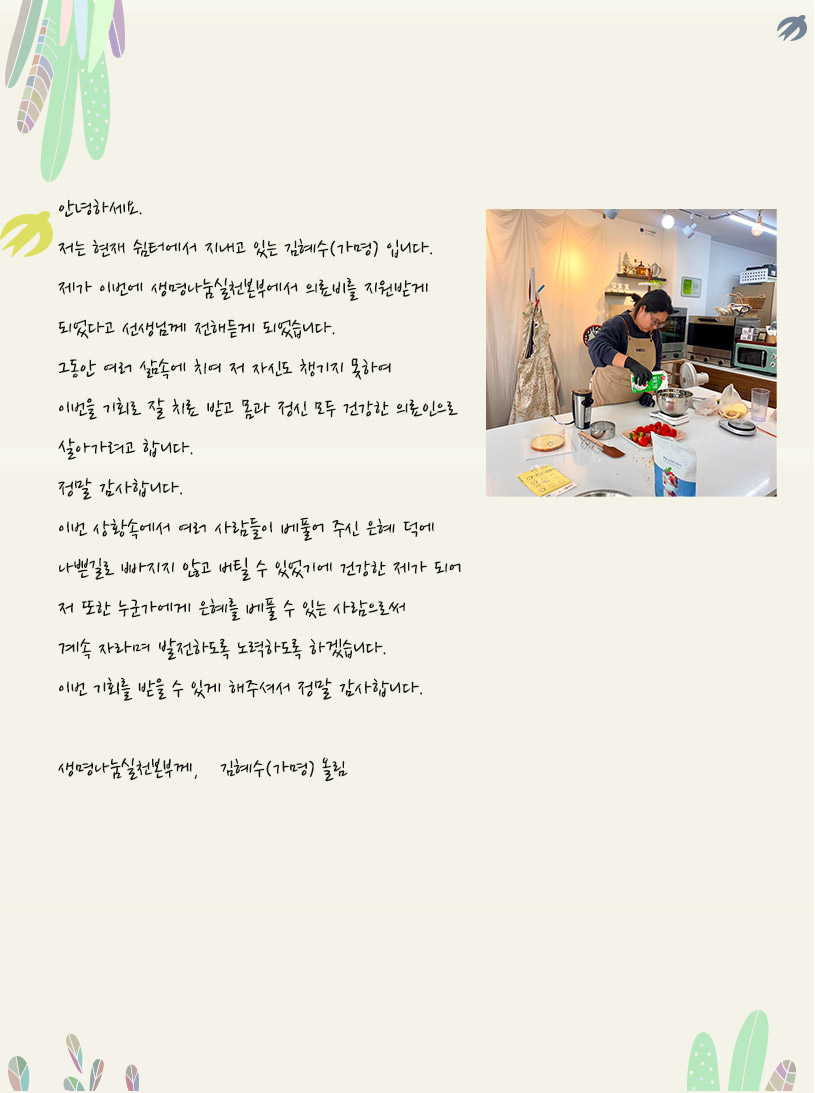 안녕하세요.
저는 현재 쉼터에서 지내고 있는 김혜수(가명) 입니다.
제가 이번에 생명나눔실천본부에서 의료비를 지원받게
되었다고 선생님께 전해듣게 되었습니다.
그동안 여러 삶속에 치여 저 자신도 챙기지 못하여
이번을 기회로 잘 치료 받고 몸과 정신 모두 건강한 의료인으로
살아가려고 합니다.
정말 감사합니다.
이번 상황속에서 여러 사람들이 베풀어 주신 은혜 덕에
나쁜길로 빠지지 않고 버틸 수 있었기에 건강한 제가 되어
저 또한 누군가에게 은혜를 베풀 수 있는 사람으로써
계속 자라며 발전하도록 노력하도록 하겠습니다.
이번 기회를 받을 수 있게 해주셔서 정말 감사합니다.
생명나눔실천본부께, 김혜수(가명) 올림